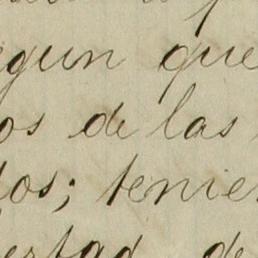 egun que
os de las
dos; tenie
ertad de